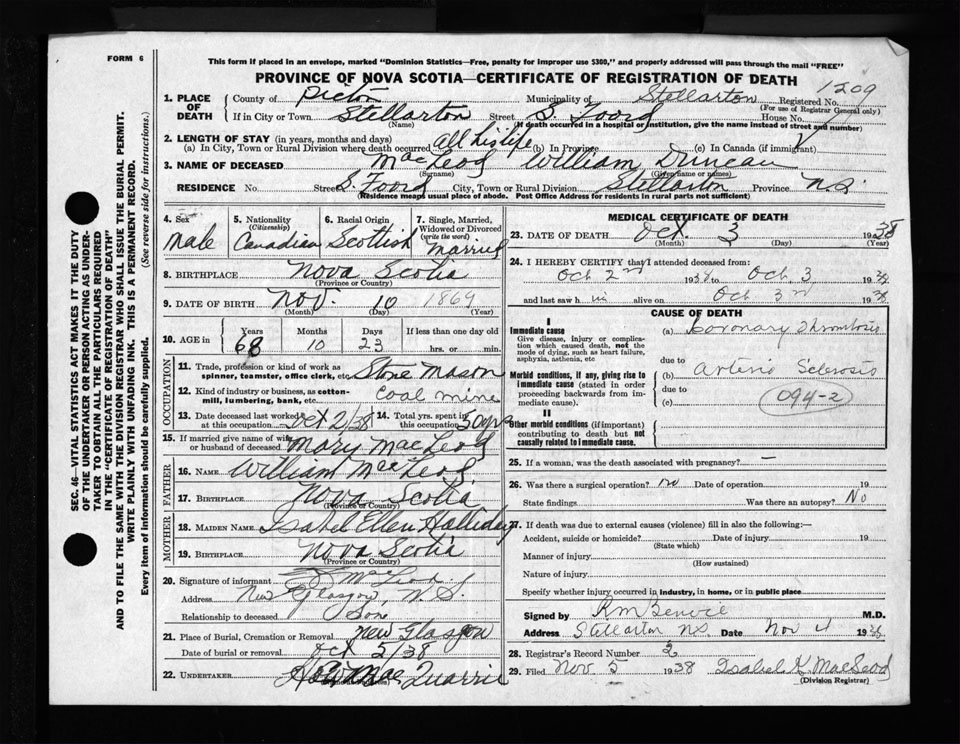 FORM 6
This form if placed in an envelope, marked "Dominion Statistics—Free, penalty for improper use $300," and properly addressed will pass through the mail "FREE"
PROVINCE OF NOVA SCOTIA—CERTIFICATE OF REGISTRATION OF DEATH
1209
1. PLACE OF DEATH County of Pictou Municipality of Stellarton Registered No.
(For use of Registrar General only)
If in City or Town Stellarton Street S. Foord House No.
(Name) (If death occurred in a hospital or institution, give the name instead of street and number)
2. LENGTH OF STAY (in years, months and days)
(a) In City, Town or Rural Division where death occurred all his life (b) In Province (c) In Canada (if immigrant)
3. NAME OF DECEASED MacLeod William Duncan
(Surname) (Given name or names)
RESIDENCE No. Street S. Foord City, Town or Rural Division Stellarton Province N.S.
(Residence means usual place of abode. Post Office Address for residents in rural parts not sufficient)
4. Sex Male
5. Nationality (Citizenship) Canadian
6. Racial Origin Scottish
7. Single, Married, Widowed or Divorced (write the word) Married
8. BIRTHPLACE Nova Scotia
(Province or Country)
9. DATE OF BIRTH Nov. 10 1869
(Month) (Day) (Year)
10. AGE in Years Months Days If less than one day old
68 10 23 hrs. or min.
OCCUPATION
11. Trade, profession or kind of work as spinner, teamster, office clerk, etc. Stone Mason
12. Kind of industry or business, as cotton-mill, lumbering, bank, etc. Coal mine
13. Date deceased last worked at this occupation Oct 2/38 14. Total yrs. spent in this occupation 50 yrs
15. If married give name of wife or husband of deceased Mary MacLeod
FATHER
16. NAME William MacLeod
17. BIRTHPLACE Nova Scotia
(Province or Country)
MOTHER
18. MAIDEN NAME Isabel Ellen Halliday
19. BIRTHPLACE Nova Scotia
(Province or Country)
20. Signature of informant MacLeod
Address New Glasgow, N.S.
Relationship to deceased Son
21. Place of Burial, Cremation or Removal New Glasgow
Date of burial or removal Oct 5/38
22. UNDERTAKER MacQuarrie
MEDICAL CERTIFICATE OF DEATH
23. DATE OF DEATH Oct. 3 1938
(Month) (Day) (Year)
24. I HEREBY CERTIFY that I attended deceased from:
Oct 2nd 1938 to Oct 3 1938
and last saw him alive on Oct 3rd 1938
CAUSE OF DEATH
I
Immediate cause
Give disease, injury or complication which caused death, not the mode of dying, such as heart failure, asphyxia, asthenia, etc
(a) Coronary Thrombosis
due to
Morbid conditions, if any, giving rise to immediate cause (stated in order proceeding backwards from immediate cause).
(b) Arterio Sclerosis
due to
(c)
094-2
II
Other morbid conditions (if important) contributing to death but not causally related to immediate cause.
25. If a woman, was the death associated with pregnancy? —
26. Was there a surgical operation? no Date of operation 19
State findings Was there an autopsy? No
27. If death was due to external causes (violence) fill in also the following:—
Accident, suicide or homicide? Date of injury 19
(State which)
Manner of injury
(How sustained)
Nature of injury
Specify whether injury occurred in industry, in home, or in public place
Signed by M.D.
Address Stellarton N.S. Date Nov 4 1938
28. Registrar's Record Number
29. Filed Nov. 5 1938 Isabel K. MacLeod
(Division Registrar)
SEC. 46—VITAL STATISTICS ACT MAKES IT THE DUTY
OF THE UNDERTAKER OR PERSON ACTING AS UNDER-
TAKER TO OBTAIN ALL THE PARTICULARS REQUIRED
IN THE "CERTIFICATE OF REGISTRATION OF DEATH"
AND TO FILE THE SAME WITH THE DIVISION REGISTRAR WHO SHALL ISSUE THE BURIAL PERMIT.
WRITE PLAINLY WITH UNFADING INK. THIS IS A PERMANENT RECORD.
Every item of information should be carefully supplied. (See reverse side for instructions.)